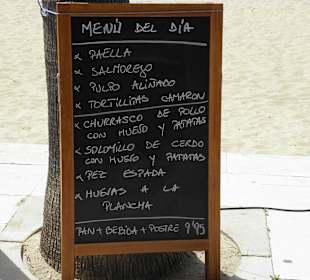 MENÚ DEL DÍA
x PAELLA
x SALMOREJO
x PULPO ALIÑADO
x TORTILLITAS CAMARON
x CHURRASCO DE POLLO
CON HUEVO Y PATATAS
x SOLOMILLO DE CERDO
CON HUEVO Y PATATAS
x PEZ ESPADA
x HUEVAS A LA
PLANCHA
PAN + BEBIDA + POSTRE 9'95